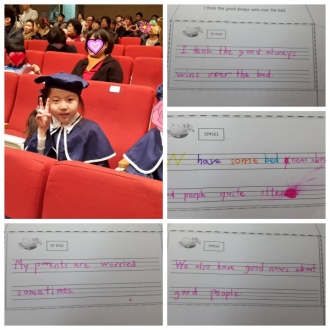 I think the good always wins over the bad.
I think the good always
wins over the bad.
SP#501
have some bad news about
people quite often
My parents are worried
sometimes.
SP#501
We also have good news about
good people.